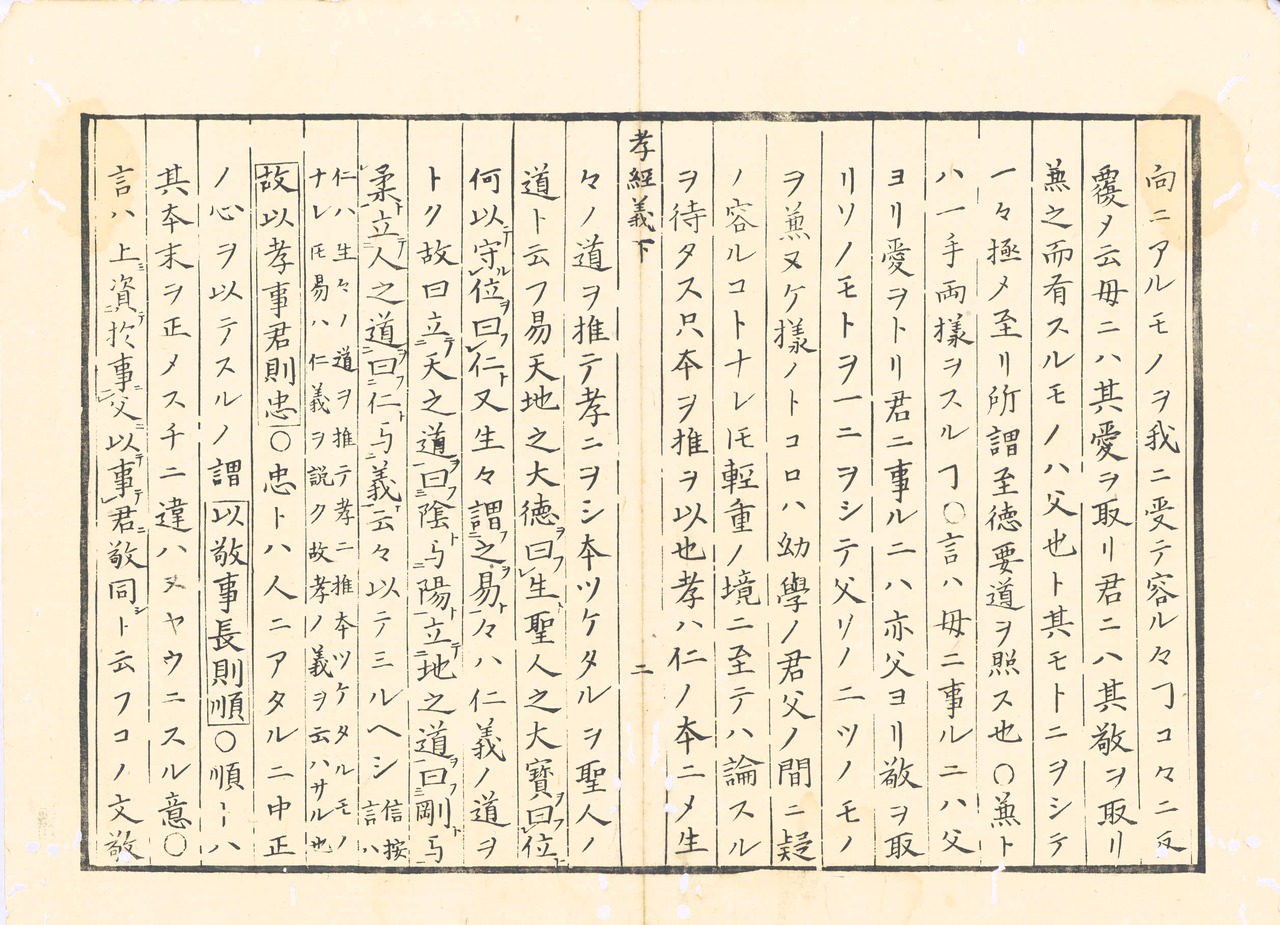 向ニアルモノヲ我ニ受テ容ル々ヿコヽニ反
覆メ云母ニハ其愛ヲ取リ君ニハ其敬ヲ取リ
兼之而有スルモノハ父也ト其モトニヲシテ
一々極メ至リ所謂至德要道ヲ照ス也〇兼ト
ハ一手両様ヲスルヿ〇言ハ母ニ事ルニハ父
ヨリ愛ヲトリ君ニ事ルニハ亦父ヨリ敬ヲ取
リソノモトヲ一ニヲシテ父リノ二ツノモノ
ヲ兼ヌケ様ノトコロハ幼學ノ君父ノ間ニ疑
ノ容ルコトナレ𪜈輕重ノ境ニ至テハ論スル
ヲ待タス只本ヲ推ヲ以也孝ハ仁ノ本ニメ生
孝經義下 二
々ノ道ヲ推テ孝ニヲシ本ツケタルヲ聖人ノ
道ト云フ易天地之大德曰生聖人之大寶曰位
何以守位曰仁又生々謂之易々ハ仁義ノ道ヲ
トク故曰立天之道曰陰与陽立地之道曰剛与
柔立人之道曰仁与義云々以テ三ルヘシ信按言ハ
仁ハ生々ノ道ヲ推テ孝ニ推本ツケタルモノ
ナレ𪜈易ハ仁義ヲ説ク故孝ノ義ヲ云ハサル也
故以孝事君則忠〇忠トハ人ニアタルニ中正
ノ心ヲ以テスルノ謂以敬事長則順〇順〻ハ
其本末ヲ正メスチニ違ハヌヤウニスル意〇
言ハ上資於事父以事君敬同ト云フコノ文敬